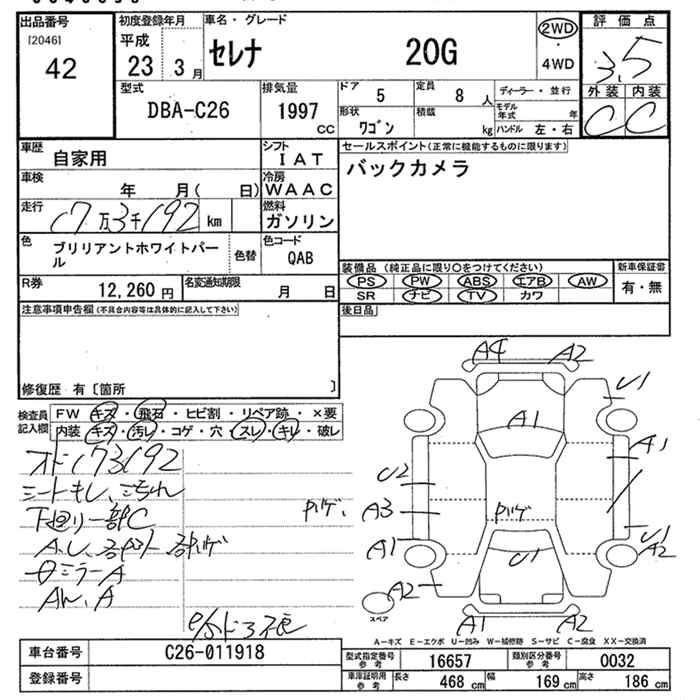 出品番号
[2046]
42
初度登録年月
平成
23 3月
車名・グレード
セレナ 20G
2WD
・
4WD
評価点
3.5
外装 内装
C C
型式
DBA-C26
排気量
1997
CC
ドア
5
定員
8人
形状
ワゴン
積載
kg
ディーラー・並行
モデル年式 年
ハンドル 左・右
車歴
自家用
シフト
IAT
車検
年 月( 日)
冷房
WAAC
走行
17万3千192km
燃料
ガソリン
色
ブリリアントホワイトパール
色替
色コード
QAB
R券
12,260円
名変通知期限
月 日
セールスポイント(正常に機能するものに限ります)
バックカメラ
装備品 (純正品に限り○をつけてください)
PS PW ABS エアB AW
SR ナビ TV カワ
新車保証書
有・無
後日品
注意事項申告欄(不具合内容等は具体的に記入して下さい)
修復歴 有〔箇所 〕
検査員記入欄
FW キズ・飛石・ヒビ割・リペア跡・×要
内装 キズ・汚レ・コゲ・穴・スレ・キレ・破レ
オド173192
シートもし、こちれ
下廻り一部C
ミラーA
A4 A2
U1
A1
A1
U2
A3
A1
U1
A2
U1
A2
A1 A2
スペア
A−キズ E−エクボ U−凹み W−補修跡 S−サビ C−腐食 XX−交換済
車台番号
C26-011918
登録番号
型式指定番号 参考
16657
類別区分番号 参考
0032
車庫証明用 参考
長さ 468cm
幅 169cm
高さ 186cm